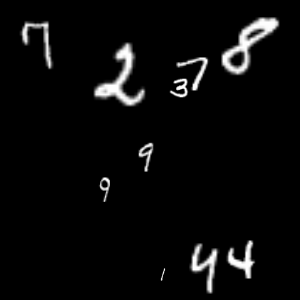 7 2 3 7 8
9
9
1 4 4